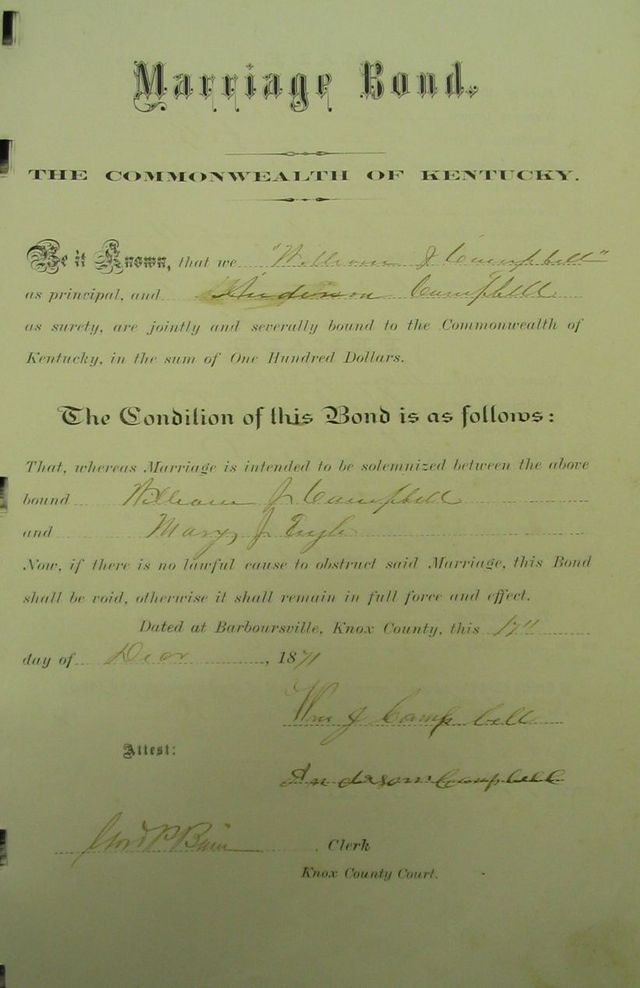 Marriage Bond.
THE COMMONWEALTH OF KENTUCKY.
Be it Known, that we "William J Campbell"
as principal, and Anderson Campbell
as surety, are jointly and severally bound to the Commonwealth of
Kentucky, in the sum of One Hundred Dollars.
The Condition of this Bond is as follows:
That, whereas Marriage is intended to be solemnized between the above
bound William J Campbell
and Mary J
Now, if there is no lawful cause to obstruct said Marriage, this Bond
shall be void, otherwise it shall remain in full force and effect.
Dated at Barboursville, Knox County, this 17"
day of , 1871
Wm J Campbell
Attest:
Anderson Campbell
Clerk
Knox County Court.